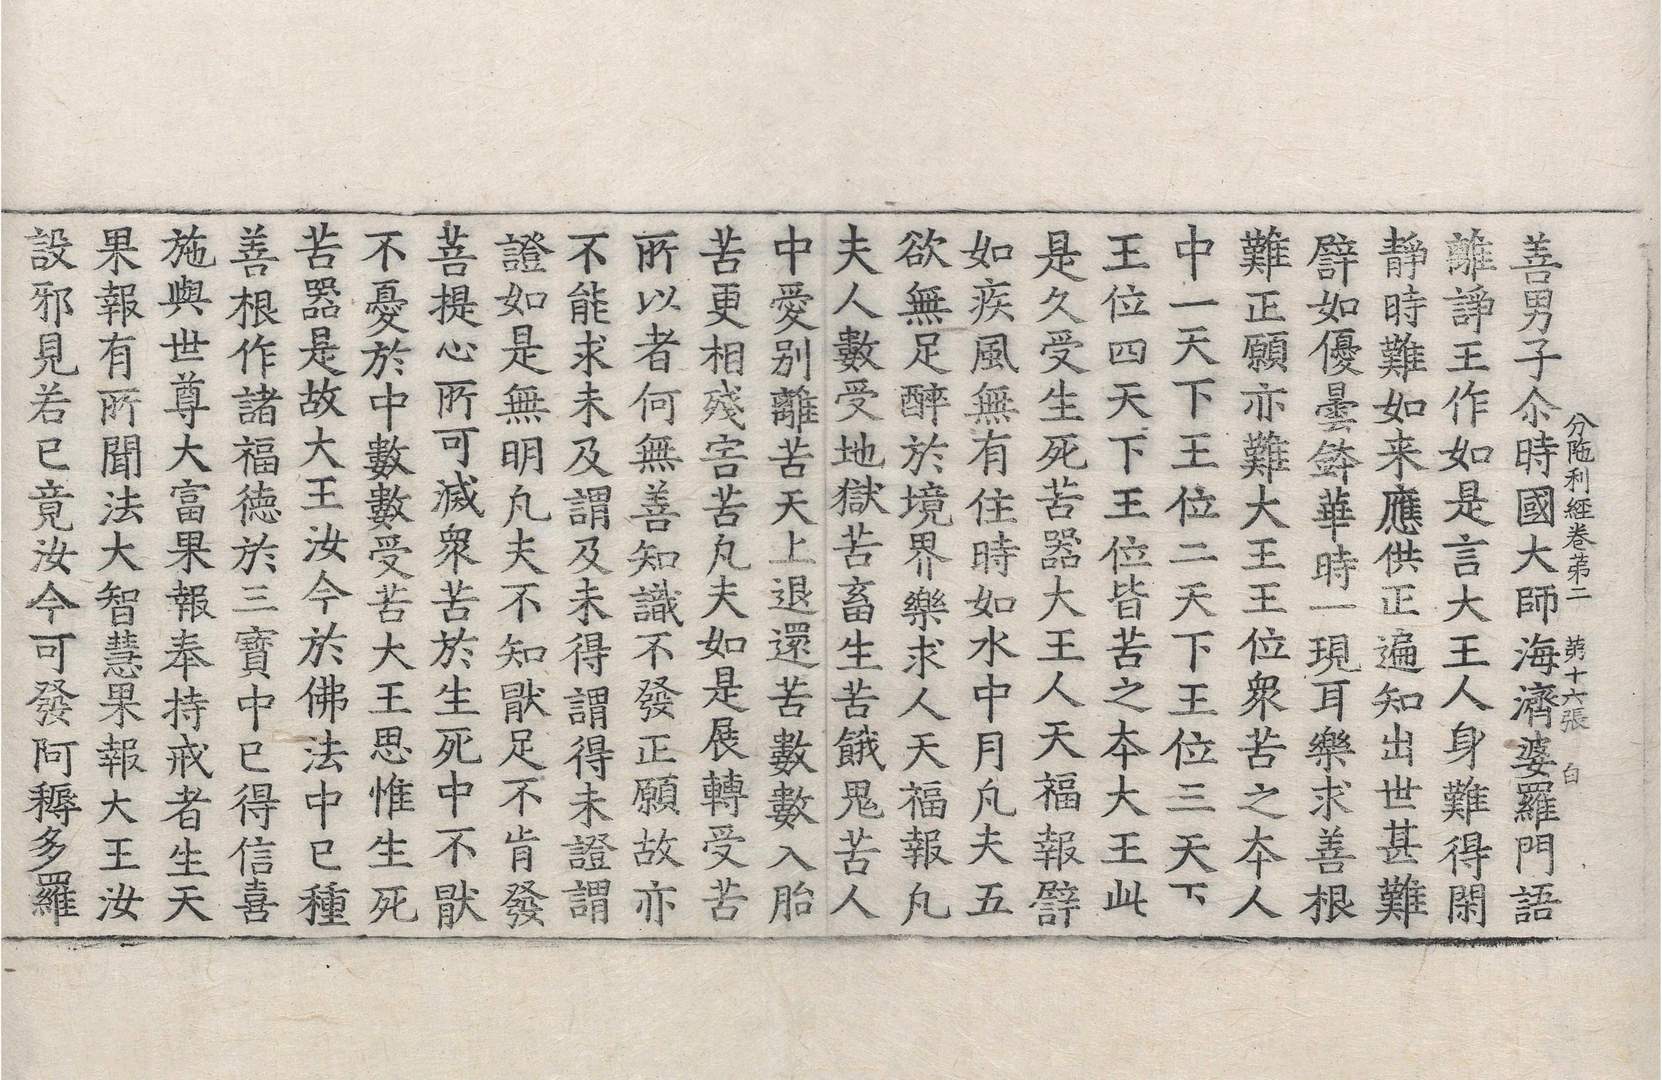 分陁利経卷苐二　苐十六張　白
善男子尒時國大師海濟婆羅門語
離諍王作如是言大王人身難得閑
靜時難如来應供正遍知出世甚難
譬如優曇鉢華時一現耳樂求善根
難正願亦難大王王位衆苦之夲人
中一天下王位二天下王位三天下
王位四天下王位皆苦之夲大王此
是久受生死苦器大王人天福報譬
如疾風無有住時如水中月凡夫五
欲無足醉於境界樂求人天福報凡
夫人數受地獄苦畜生苦餓鬼苦人
中愛别離苦天上退還苦數數入胎
苦更相殘害苦凡夫如是展轉受苦
所以者何無善知識不發正願故亦
不能求未及謂及未得謂得未證謂
證如是無明凡夫不知猒足不肯發
菩提心所可滅衆苦於生死中不猒
不憂於中數數受苦大王思惟生死
苦器是故大王汝今於佛法中已種
善根作諸福德於三寶中已得信喜
施與世尊大富果報奉持戒者生天
果報有所聞法大智慧果報大王汝
設邪見若已竟汝今可發阿耨多羅